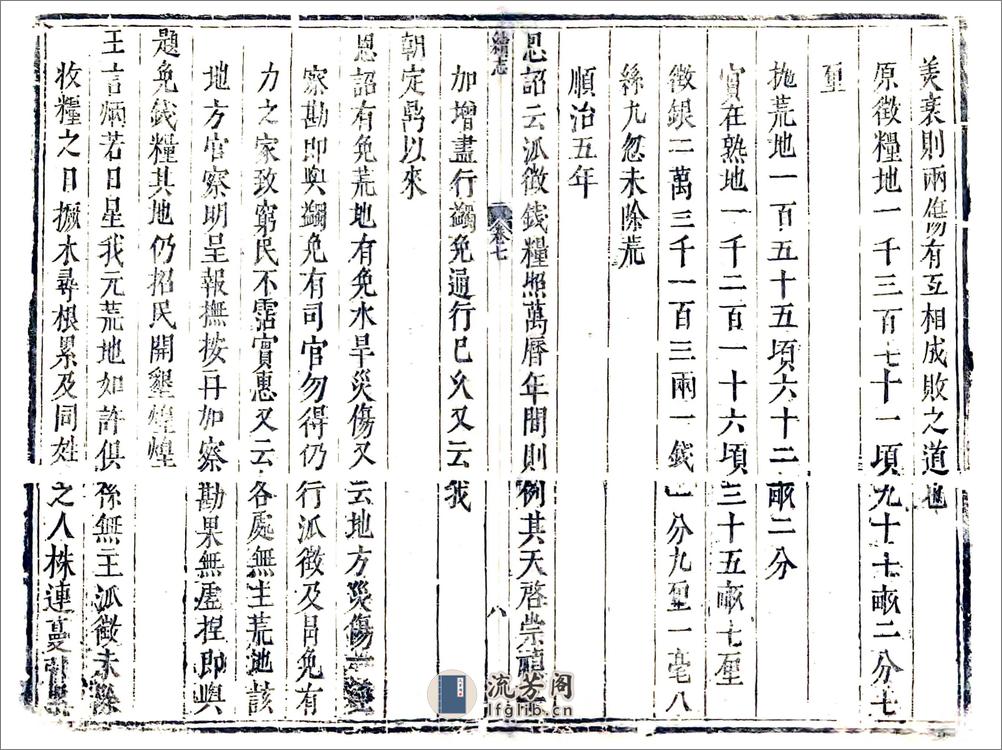 美衰則兩傷有互相成敗之道也
原徵糧地一千三百七十一頃九十七畝二分七
厘
抛荒地一百五十五頃六十二畝二分
實在熟地一千二百一十六頃三十五畝七厘
徵銀二萬三千一百三兩一錢一分九厘一毫八
絲九忽未除荒
順治五年
恩詔云派徵錢糧照萬曆年間則例其天啓崇禎
續志
卷七
八
加增盡行蠲免通行已久又云我
朝定鼎以來
恩詔有免荒地有免水旱災傷又云地方災傷一經
察勘即與蠲免有司官勿得仍行派徵及呂免有
力之家致窮民不霑實惠又云各處無主荒地該
地方官察明呈報撫按再加察勘果無虛捏即與
題免錢糧其地仍招民開墾煌煌
王言炳若日星我元荒地如許俱係無主派徵未除
收糧之日撅木尋根累及同姓之人株連蔓引
流芳阁
lfglib.cn